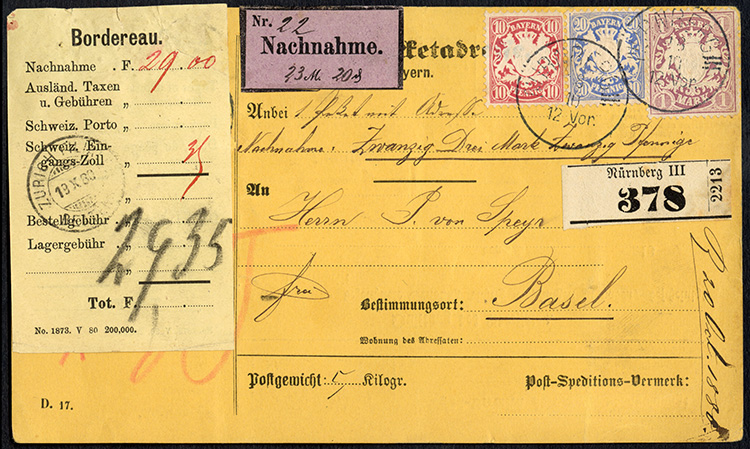 Bordereau.
Nachnahme . F. 29.00
Ausländ. Taxen
u. Gebühren „
Schweiz. Porto „
Schweiz. Ein-
gangs-Zoll „ 35
„
Bestellgebühr . „
Lagergebühr . „
„
2935
Tot. F.
No. 1873. V 80 200,000.
ZÜRICH
19 X 80
Nr. 22
Nachnahme.
23 M. 20 d
ketadre
yern.
10 BAYERN 10
10 PFENNIG 10
20 BAYERN 20
20 PFENNIG 20
BAYERN
1 MARK 1
12 Vor.
III
Anbei 1 Paket mit Adresse
Nachnahme: Zwanzig Drei Mark Zwanzig Pfennige
Nürnberg III
378
2213
An
Herrn P. von Speyr
frei
Bestimmungsort: Basel.
Wohnung des Adressaten:
Postgewicht: 5 Kilogr.
Post-Speditions-Vermerk:
D. 17.